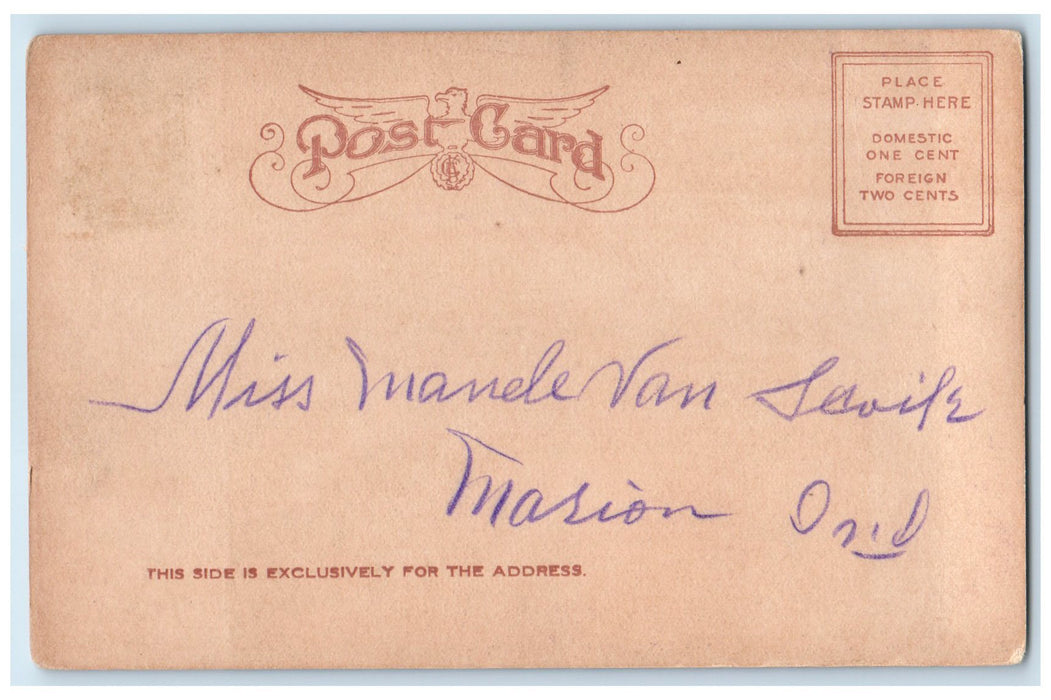 Post Card
PLACE
STAMP HERE
DOMESTIC
ONE CENT
FOREIGN
TWO CENTS
Miss Maude Van
Marion Ind
THIS SIDE IS EXCLUSIVELY FOR THE ADDRESS.